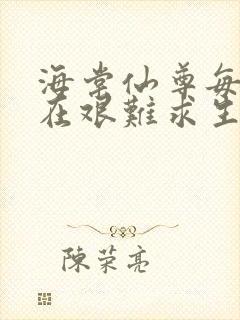 海棠仙尊每天都
在艰難求生
陳荣亮